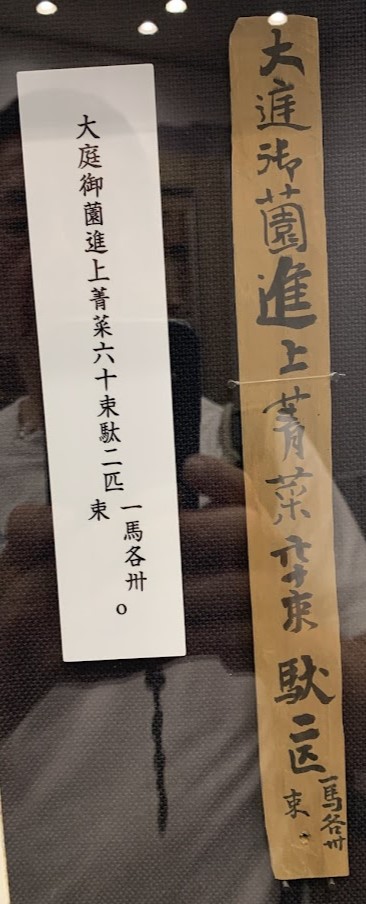 大庭御薗進上菁菜六十束駄二匹
一馬各卅
束
大庭御薗進上菁菜六十束駄二匹
一馬各卅 o
束